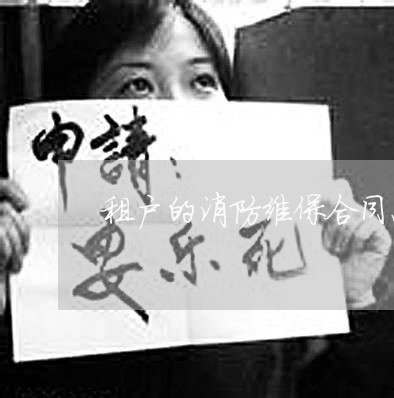 申請：
租户的消防维保合同、
安乐死